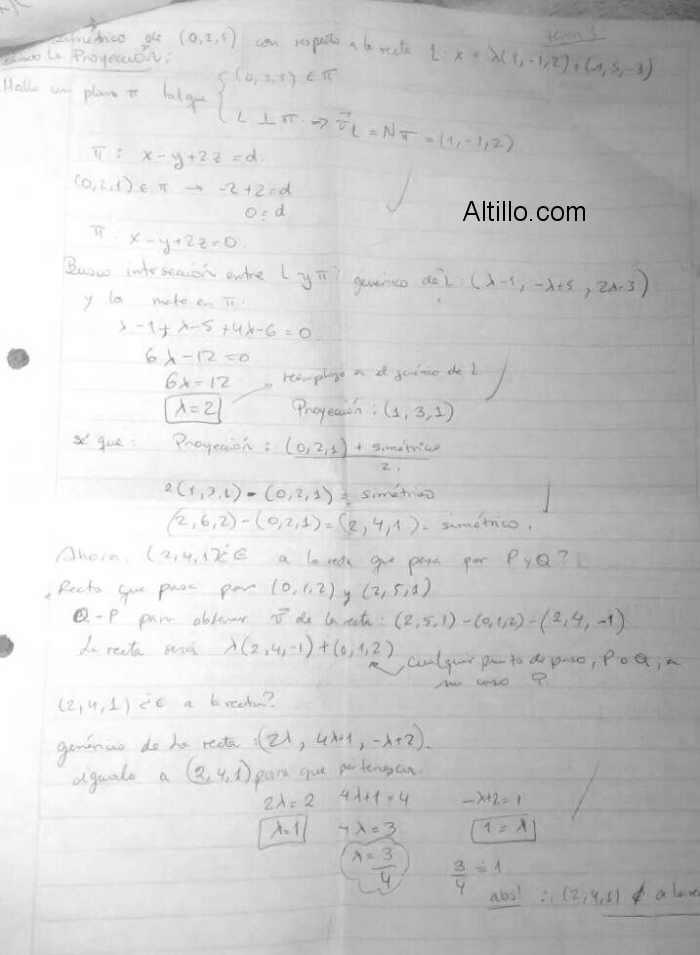 Tema 3
simétrico de (0,2,1) con respecto a la recta L: x = λ(1,-1,2)+(-1,5,-3)
la Proyección:
Hallo un plano π tal que { (0,2,1) ∈ π
L ⊥ π → v⃗L = Nπ = (1,-1,2)
π: x-y+2z=d.
(0,2,1) ∈ π → -2+2=d
0=d
Altillo.com
π: x-y+2z=0.
Busco intersección entre L y π: genérico de L: (λ-1, -λ+5, 2λ-3)
y lo meto en π:
λ-1+λ-5+4λ-6=0
6λ-12=0
6λ=12
reemplazo en el genérico de L
λ=2
Proyección: (1,3,1)
sé que: Proyección: (0,2,1) + simétrico
2.
2(1,3,1)-(0,2,1) = simétrico
(2,6,2)-(0,2,1)=(2,4,1)= simétrico.
Ahora, (2,4,1)¿∈ a la recta que pasa por P y Q?
Recta que pasa por (0,1,2) y (2,5,1)
Q-P para obtener v⃗ de la recta: (2,5,1)-(0,1,2)=(2,4,-1)
La recta será λ(2,4,-1)+(0,1,2)
cualquier punto de paso, P o Q, en
mi caso P.
(2,4,1) ¿∈ a la recta?
genérico de la recta: (2λ, 4λ+1, -λ+2).
igualo a (2,4,1) para que pertenezca.
2λ=2 4λ+1=4 -λ+2=1
λ=1 4λ=3 1=λ
λ=3/4 3/4=1
abs! ∴ (2,4,1) ∉ a la